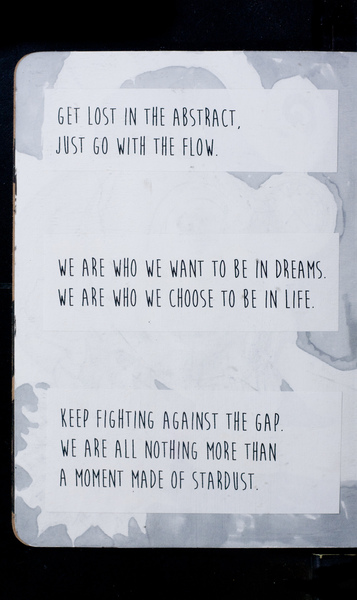 GET LOST IN THE ABSTRACT,
JUST GO WITH THE FLOW.
WE ARE WHO WE WANT TO BE IN DREAMS.
WE ARE WHO WE CHOOSE TO BE IN LIFE.
KEEP FIGHTING AGAINST THE GAP.
WE ARE ALL NOTHING MORE THAN
A MOMENT MADE OF STARDUST.